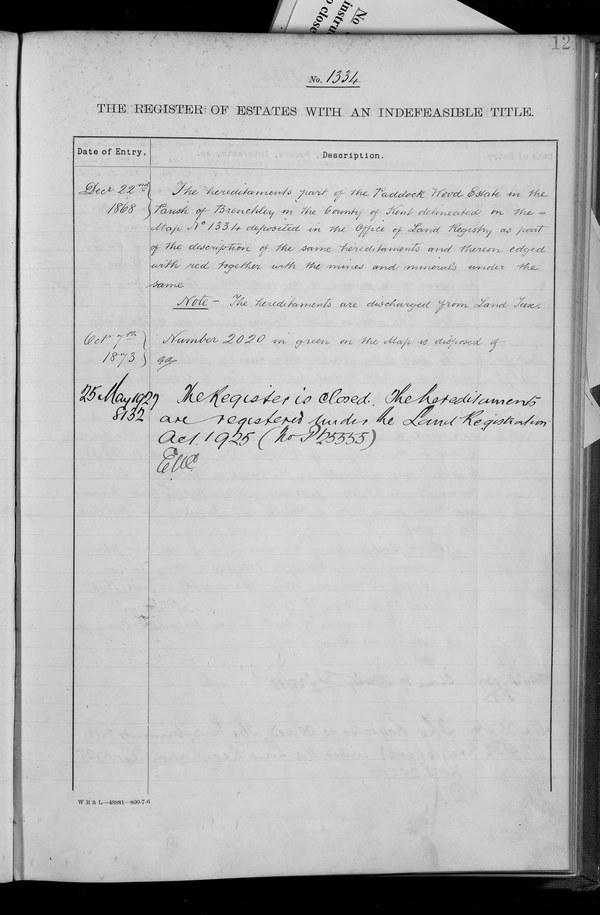 No
instruc
to close
12
No. 1334
THE REGISTER OF ESTATES WITH AN INDEFEASIBLE TITLE.
Date of Entry.
Description.
Decr 22nd
1868
The hereditaments part of the Paddock Wood Estate in the
Parish of Brenchley in the County of Kent delineated on the =
Map No 1334 deposited in the Office of Land Registry as part
of the description of the same hereditaments and thereon edged
with red together with the mines and minerals under the
same
Note - The hereditaments are discharged from Land Tax.
Octr 7th
1873
Number 2020 in green on the Map is disposed of
25 May 1927
8132
The Register is closed. The hereditaments
are registered under the Land Registration
Act. 1925 (No P 25555)
W B & L—48881—800-7-6